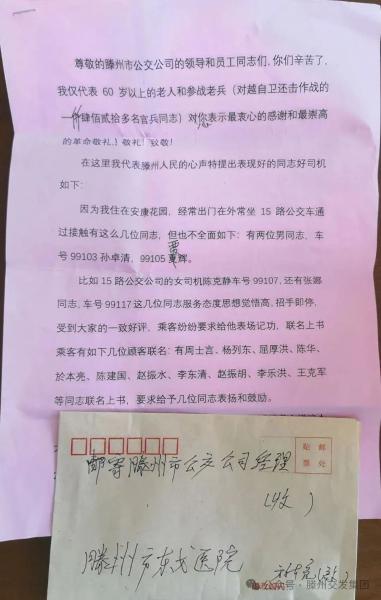 尊敬的滕州市公交公司的领导和员工同志们,你们辛苦了,
我仅代表 60 岁以上的老人和参战老兵(对越自卫还击作战的
一仟肆佰贰拾多名官兵同志)对您表示最衷心的感谢和最崇高
的革命敬礼!敬礼!致敬!
在这里我代表滕州人民的心声特提出表现好的同志好司机
如下:
因为我住在安康花园,经常出门在外常坐 15 路公交车通
过接触有这么几位同志,但也不全面如下:有两位男同志,车
号 99103 孙卓清,99105 贾辉。
比如 15 路公交公司的女司机陈克静车号 99107,还有张娜
同志,车号 99117 这几位同志服务态度思想觉悟高,招手即停,
受到大家的一致好评,乘客纷纷要求给他表场记功,联名上书
乘客有如下几位顾客联名:有周士言、杨列东、屈厚洪、陈华、
於本亮、陈建国、赵振水、李东清、赵振胡、李乐洪、王克军
等同志联名上书,要求给予几位同志表扬和鼓励。
贴 邮
票 处
邮寄滕州市公交公司经理
(收)
滕州市东戈医院
公众号·滕州交发集团